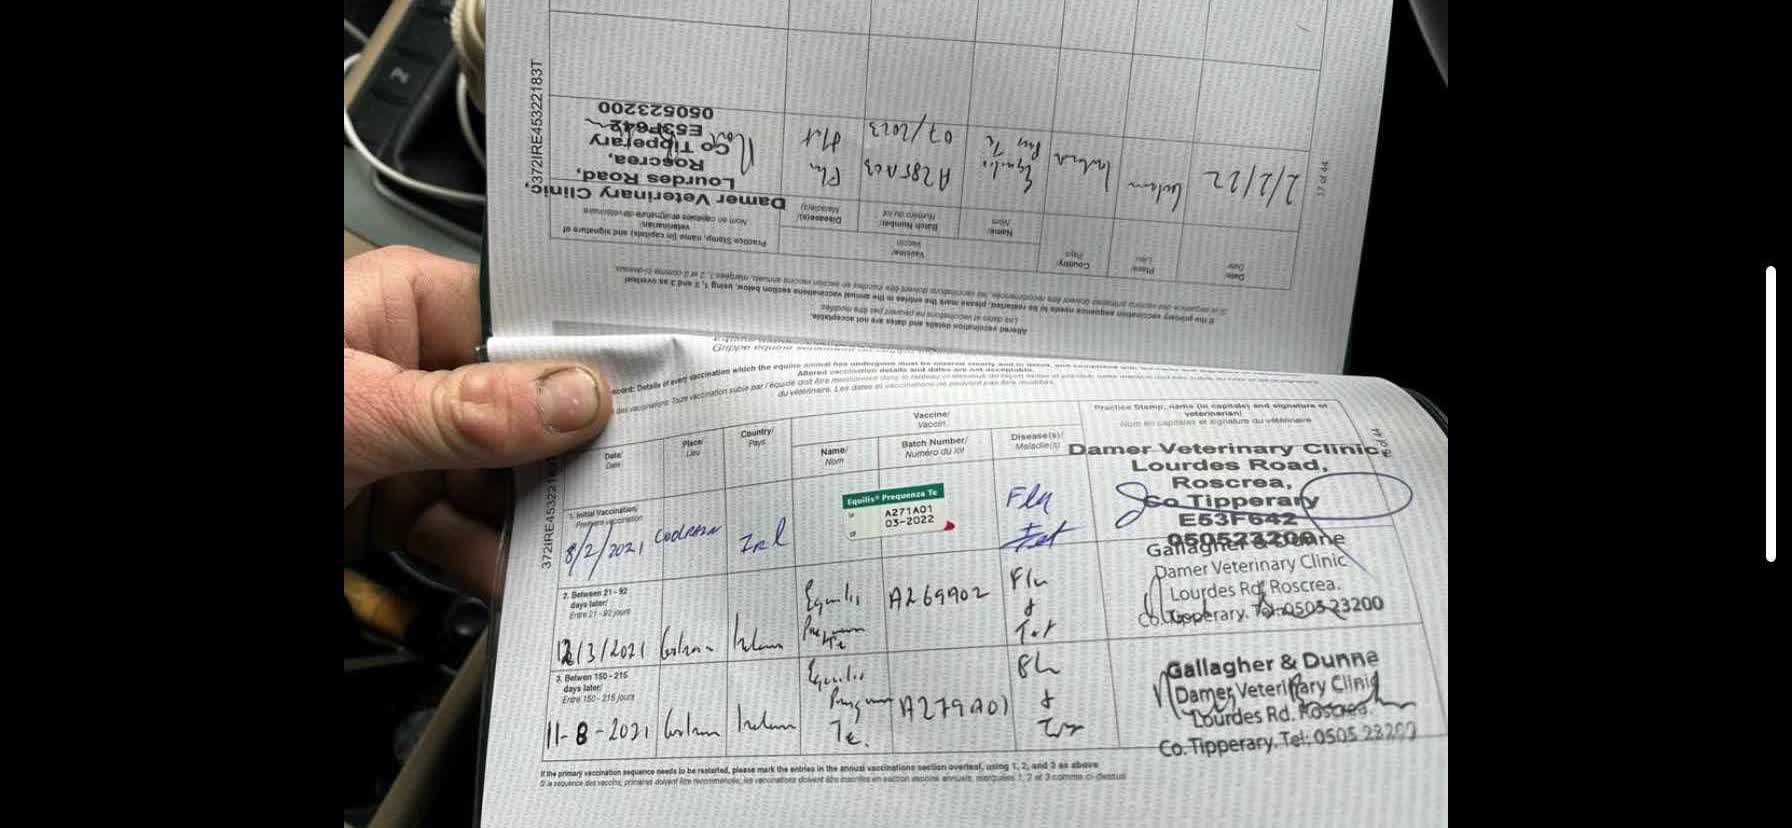 372IRE45322183T
17 of 44
Altered vaccination details and dates are not acceptable.
Les dates et vaccinations ne peuvent pas être modifiés
If the primary vaccination sequence needs to be restarted, please mark the entries in the annual vaccinations section below, using 1, 2 and 3 as overleaf
Date/
Date
Place/
Lieu
Country/
Pays
Vaccine/
Vaccin
Name/
Nom
Batch Number/
Numéro du lot
Disease(s)/
Maladie(s)
Practice Stamp, name (in capitals) and signature of
veterinarian/
Nom en capitales et signature du vétérinaire
2/2/22
Equilis
A285A03
07/2023
Flu
Damer Veterinary Clinic,
Lourdes Road,
Roscrea,
Co Tipperary
E53F642
050523200
Details of every vaccination which the equine animal has undergone must be entered clearly and in detail, and
Altered vaccination details and dates are not acceptable.
des vaccinations: Toute vaccination subie par l'équidé doit être mentionnée dans le tableau ci-dessous de façon lisible et précise
du vétérinaire. Les dates et vaccinations ne peuvent pas être modifiés.
Date/
Date
Place/
Lieu
Country/
Pays
Vaccine/
Vaccin
Name/
Nom
Batch Number/
Numéro du lot
Disease(s)/
Maladie(s)
Practice Stamp, name (in capitals) and signature of
veterinarian/
Nom en capitales et signature du vétérinaire
1. Initial Vaccination/
Première vaccination
8/2/2021
Irl
Equilis® Prequenza Te
A271A01
03-2022
Flu
Tet
Damer Veterinary Clinic,
Lourdes Road,
Roscrea,
Co Tipperary
E53F642
050523200
2. Between 21 - 92
days later/
Entre 21 - 92 jours
12/3/2021
Equilis
Te
A269A02
Flu
&
Tet
Gallagher & Dunne
Damer Veterinary Clinic
Lourdes Rd, Roscrea.
Co. Tipperary. Tel: 0505 23200
3. Betwen 150 - 215
days later/
Entre 150 - 215 jours
11-8-2021
Equilis
Te.
A279A01
&
Gallagher & Dunne
Damer Veterinary Clinic
Lourdes Rd. Roscrea.
Co. Tipperary. Tel: 0505 23200
If the primary vaccination sequence needs to be restarted, please mark the entries in the annual vaccinations section overleaf, using 1, 2, and 3 as above